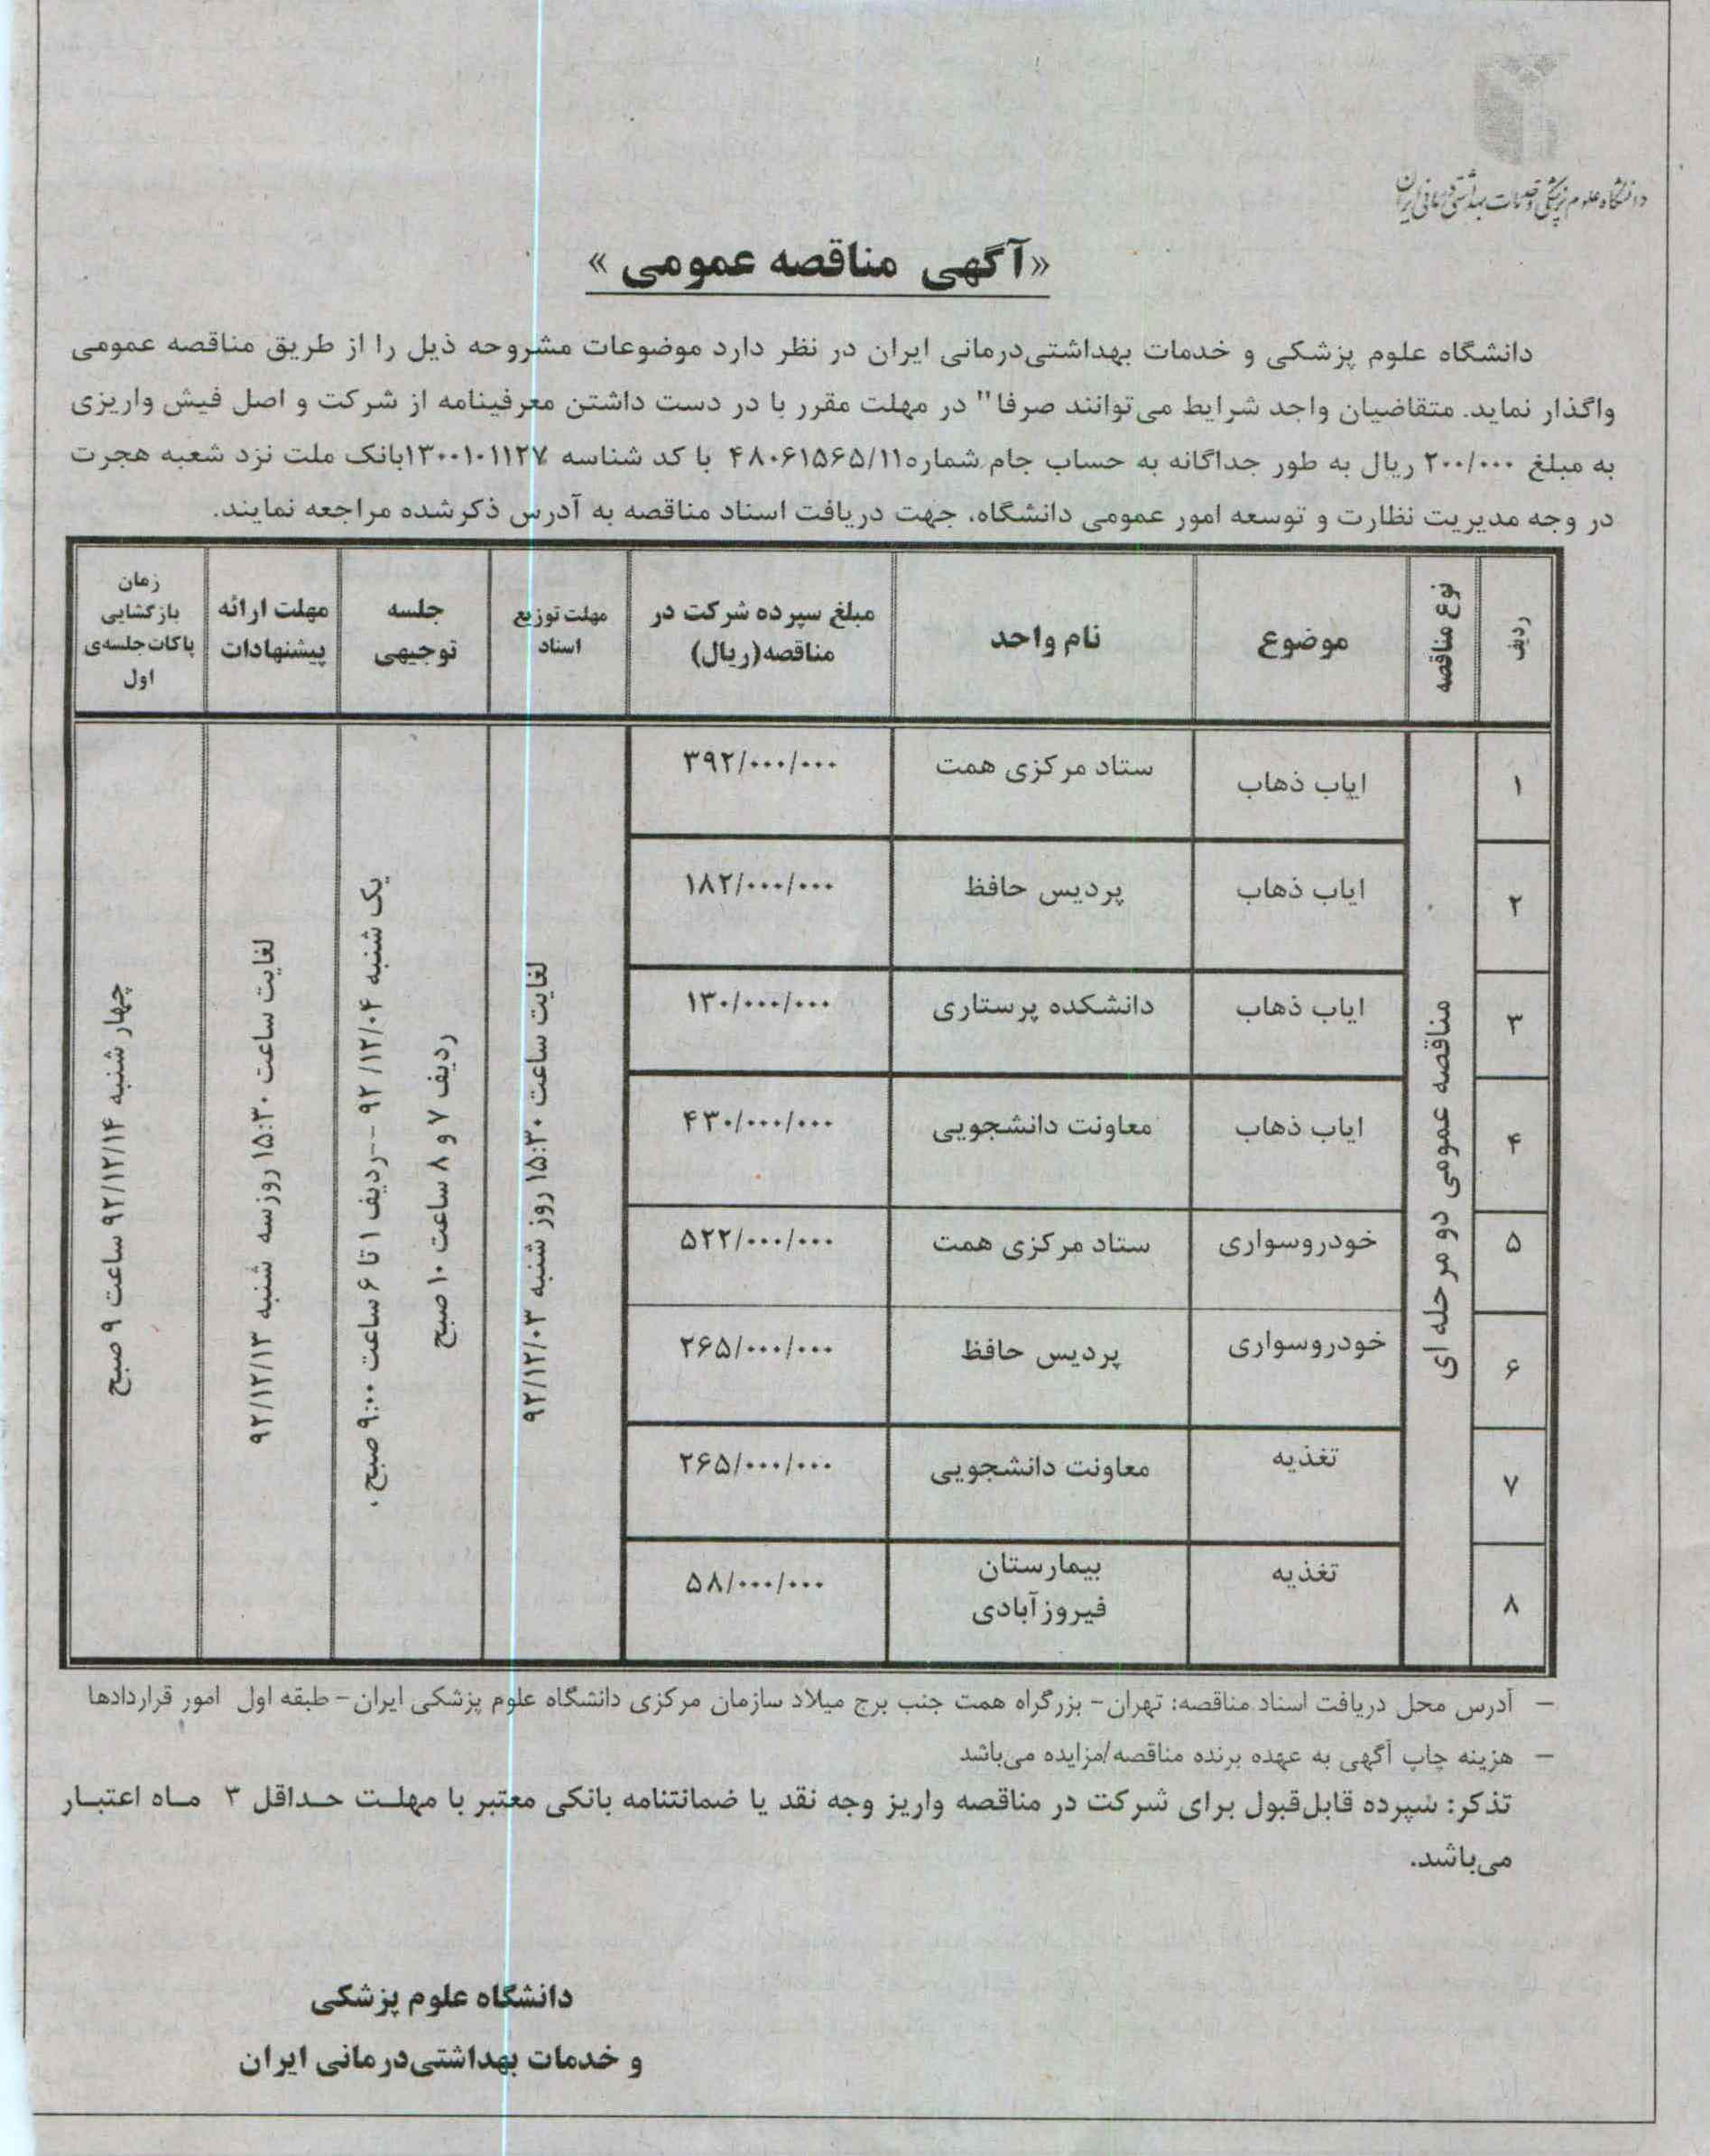 دانشگاه علوم پزشکی و خدمات بهداشتی درمانی ایران
«آگهی مناقصه عمومی »
دانشگاه علوم پزشکی و خدمات بهداشتی‌درمانی ایران در نظر دارد موضوعات مشروحه ذیل را از طریق مناقصه عمومی
واگذار نماید. متقاضیان واجد شرایط می‌توانند صرفا" در مهلت مقرر با در دست داشتن معرفینامه از شرکت و اصل فیش واریزی
به مبلغ ۲۰۰/۰۰۰ ریال به طور جداگانه به حساب جام شماره۴۸۰۶۱۵۶۵/۱۱ با کد شناسه ۱۳۰۰۱۰۱۱۲۷بانک ملت نزد شعبه هجرت
در وجه مدیریت نظارت و توسعه امور عمومی دانشگاه، جهت دریافت اسناد مناقصه به آدرس ذکرشده مراجعه نمایند.
ردیف
نوع مناقصه
موضوع
نام واحد
مبلغ سپرده شرکت در
مناقصه(ریال)
مهلت توزیع
اسناد
جلسه
توجیهی
مهلت ارائه
پیشنهادات
زمان
بازگشایی
پاکات جلسه‌ی
اول
۱ ایاب ذهاب ستاد مرکزی همت ۳۹۲/۰۰۰/۰۰۰
۲ ایاب ذهاب پردیس حافظ ۱۸۲/۰۰۰/۰۰۰
۳ ایاب ذهاب دانشکده پرستاری ۱۳۰/۰۰۰/۰۰۰
۴ ایاب ذهاب معاونت دانشجویی ۴۳۰/۰۰۰/۰۰۰
۵ خودروسواری ستاد مرکزی همت ۵۲۲/۰۰۰/۰۰۰
۶ خودروسواری پردیس حافظ ۲۶۵/۰۰۰/۰۰۰
۷ تغذیه معاونت دانشجویی ۲۶۵/۰۰۰/۰۰۰
۸ تغذیه بیمارستان
فیروزآبادی ۵۸/۰۰۰/۰۰۰
مناقصه عمومی دو مرحله ای
لغایت ساعت ۱۵:۳۰ روز شنبه ۹۲/۱۲/۰۳
یک شنبه ۹۲/۱۲/۰۴ --ردیف ۱ تا ۶ ساعت ۹:۰۰ صبح ،
ردیف ۷ و ۸ ساعت ۱۰ صبح
لغایت ساعت ۱۵:۳۰ روزسه شنبه ۹۲/۱۲/۱۳
چهارشنبه ۹۲/۱۲/۱۴ ساعت ۹ صبح
– آدرس محل دریافت اسناد مناقصه: تهران- بزرگراه همت جنب برج میلاد سازمان مرکزی دانشگاه علوم پزشکی ایران- طبقه اول امور قراردادها
– هزینه چاپ آگهی به عهده برنده مناقصه/مزایده می‌باشد
تذکر: سپرده قابل‌قبول برای شرکت در مناقصه واریز وجه نقد یا ضمانتنامه بانکی معتبر با مهلت حداقل ۳ ماه اعتبار
می‌باشد.
دانشگاه علوم پزشکی
و خدمات بهداشتی‌درمانی ایران